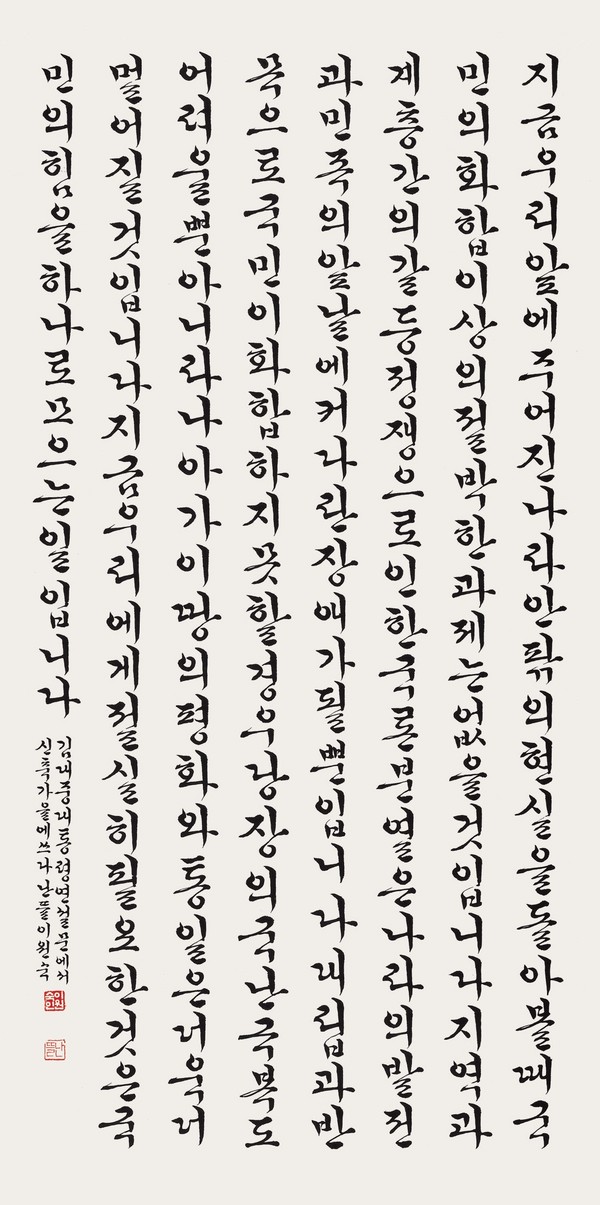 지금우리앞에주어진나라안팎의현실을돌아볼때국
민의화합이상의절박한과제는없을것입니다지역과
계층간의갈등정쟁으로인한국론분열은나라의발전
과민족의앞날에커다란장애가될뿐입니다대립과반
목으로국민이화합하지못할경우당장의국난극복도
어려울뿐아니라나아가이땅의평화와통일은더욱더
멀어질것입니다지금우리에게절실히필요한것은국
민의힘을하나로모으는일입니다
김대중대통령연설문에서
신축가을에쓰다난뜰이원숙
이원숙인
난뜰